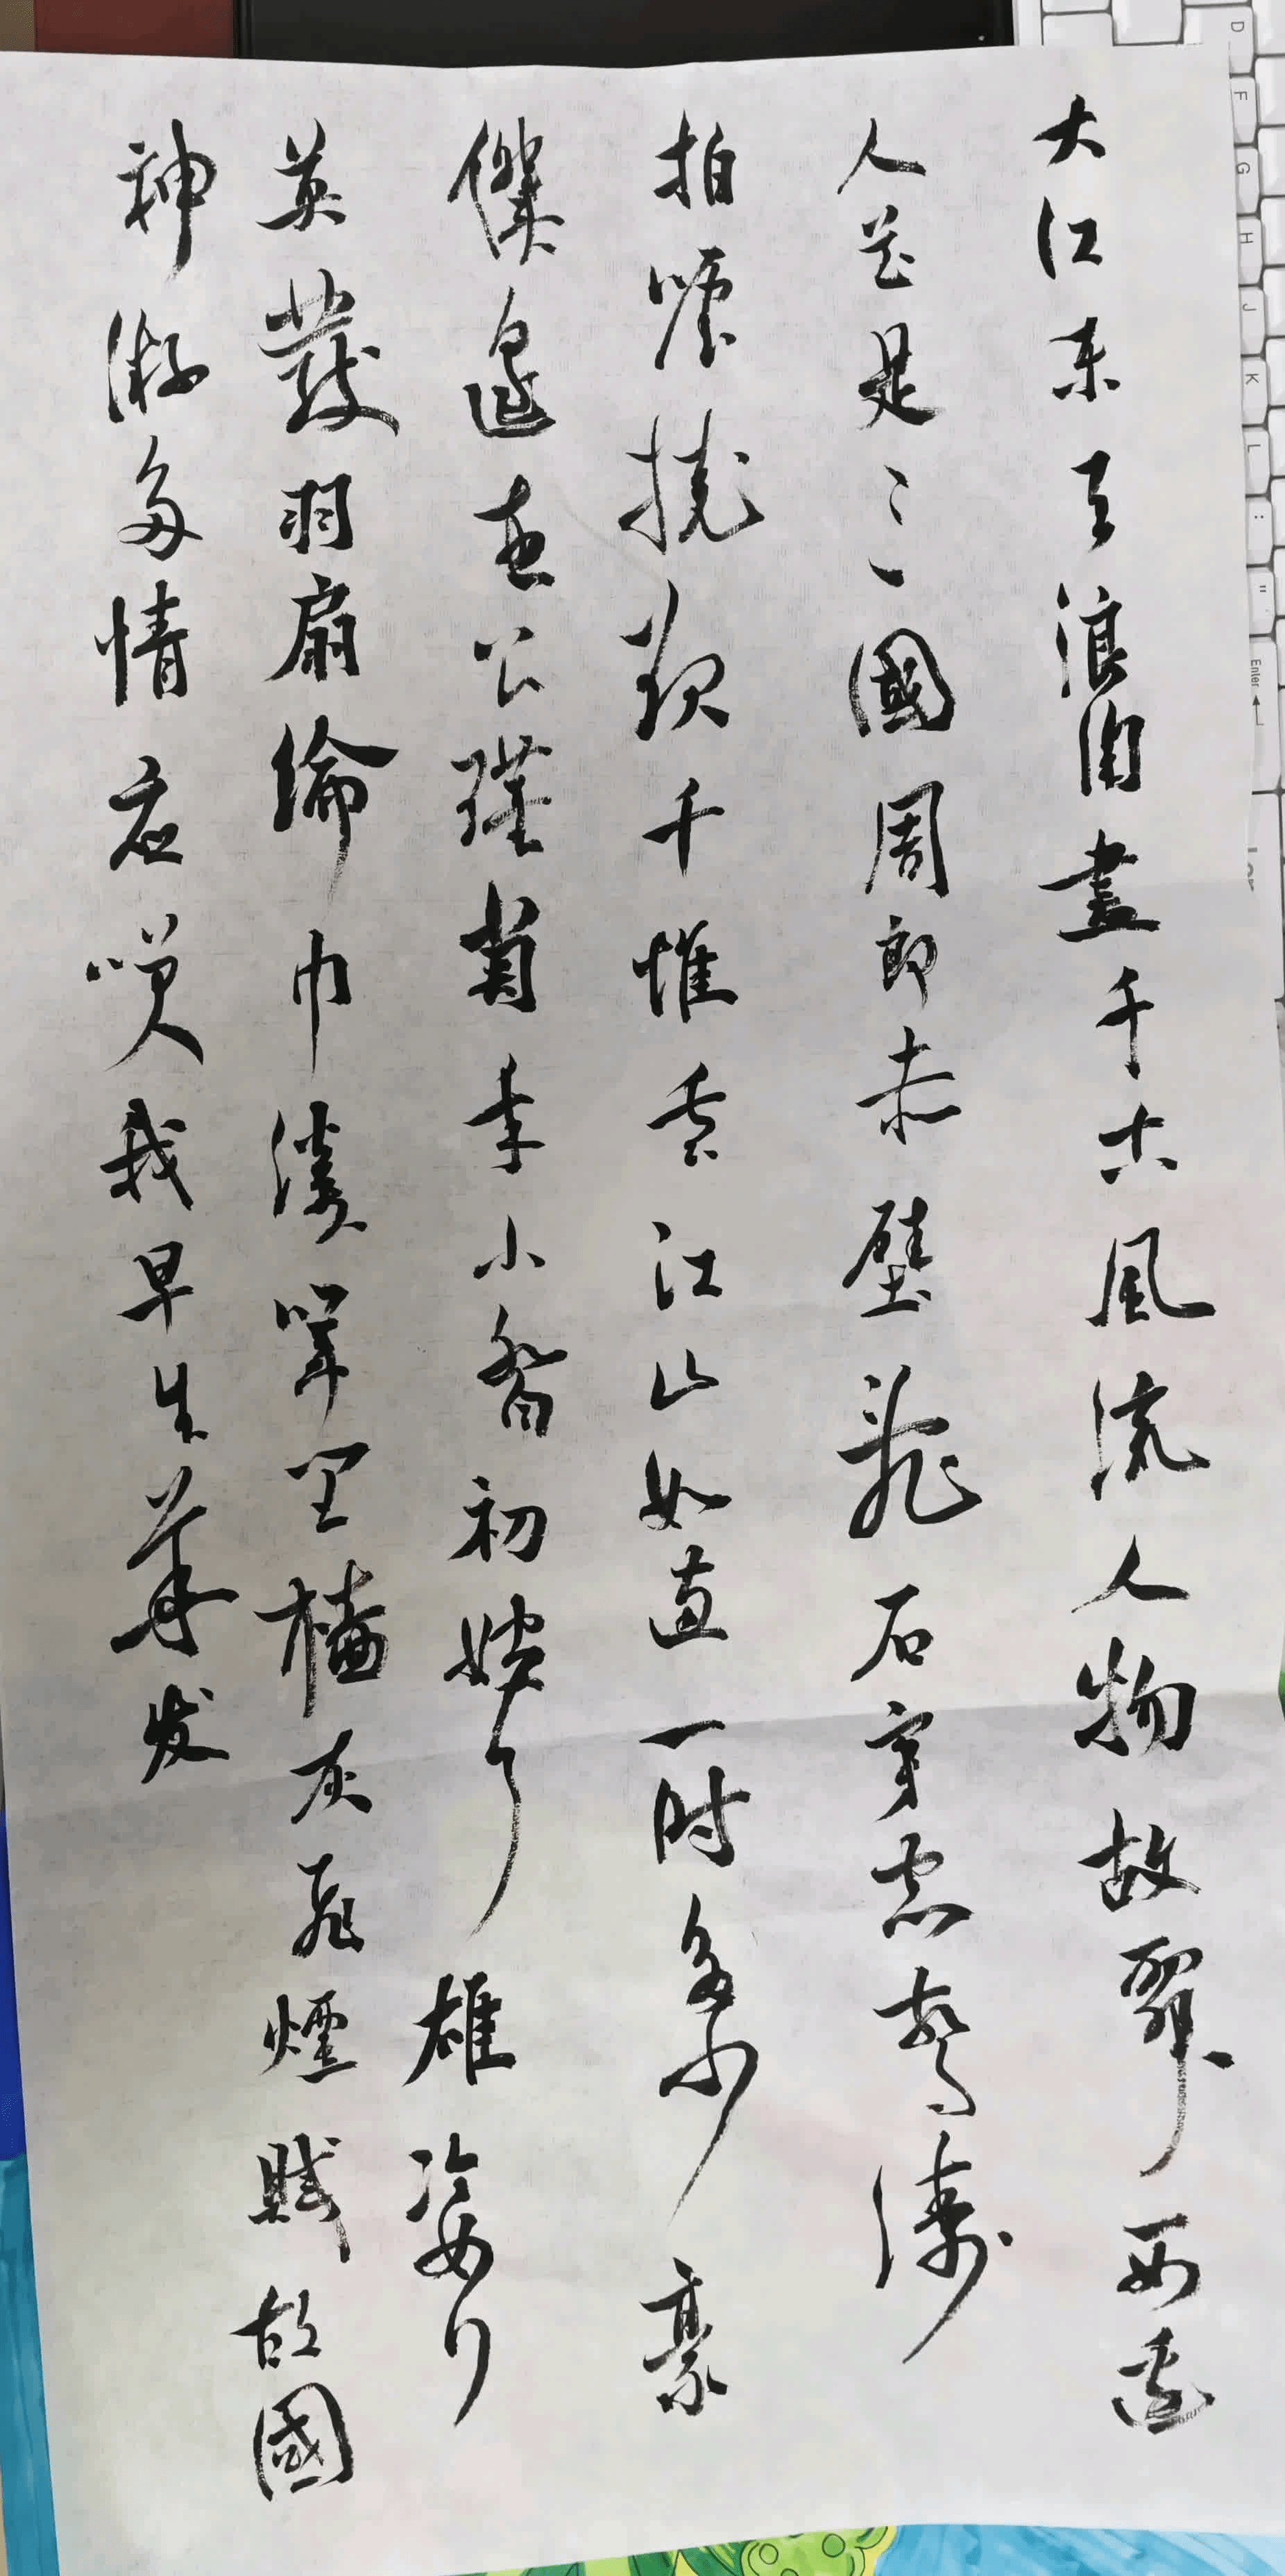 大江东去浪淘盡千古風流人物故壘西邊
人道是三國周郎赤壁亂石穿空驚濤
拍岸捲起千堆雪江山如畫一时多少豪
傑遙想公瑾當年小喬初嫁了雄姿
英發羽扇綸巾談笑間檣灰飛煙滅故國
神游多情应笑我早生華发
D
F
G
H
J
K
L
Enter